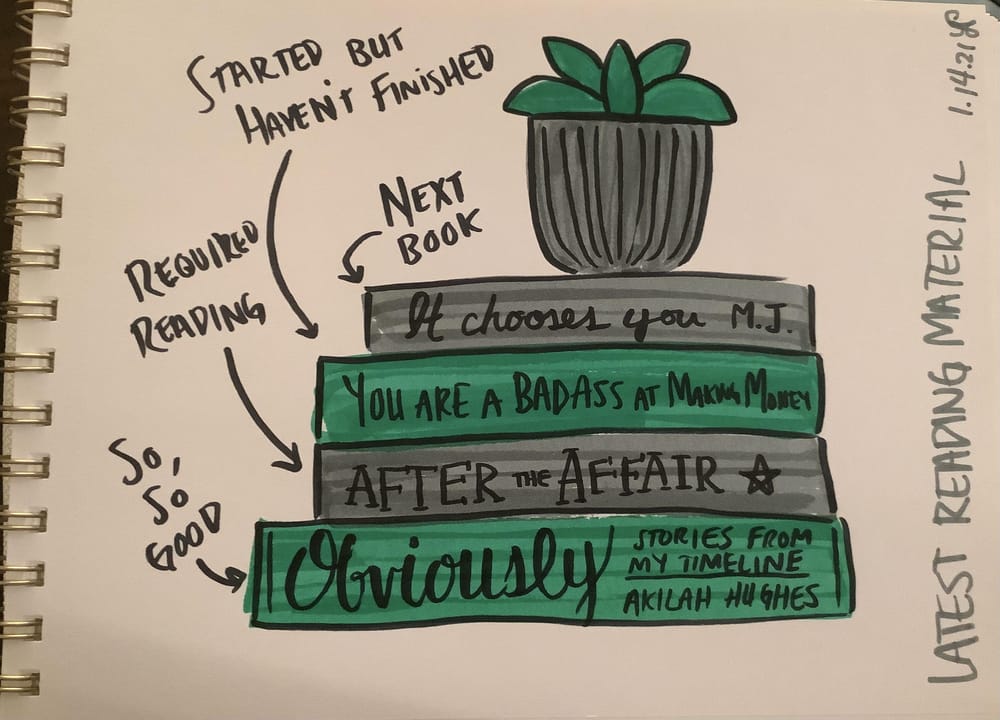 STARTED BUT
HAVEN'T FINISHED
NEXT
BOOK
REQUIRED
READING
SO,
SO
GOOD
It chooses you M.J.
YOU ARE A BADASS AT MAKING MONEY
AFTER THE AFFAIR
Obviously
STORIES FROM
MY TIMELINE
AKILAH HUGHES
LATEST READING MATERIAL 1.14.21